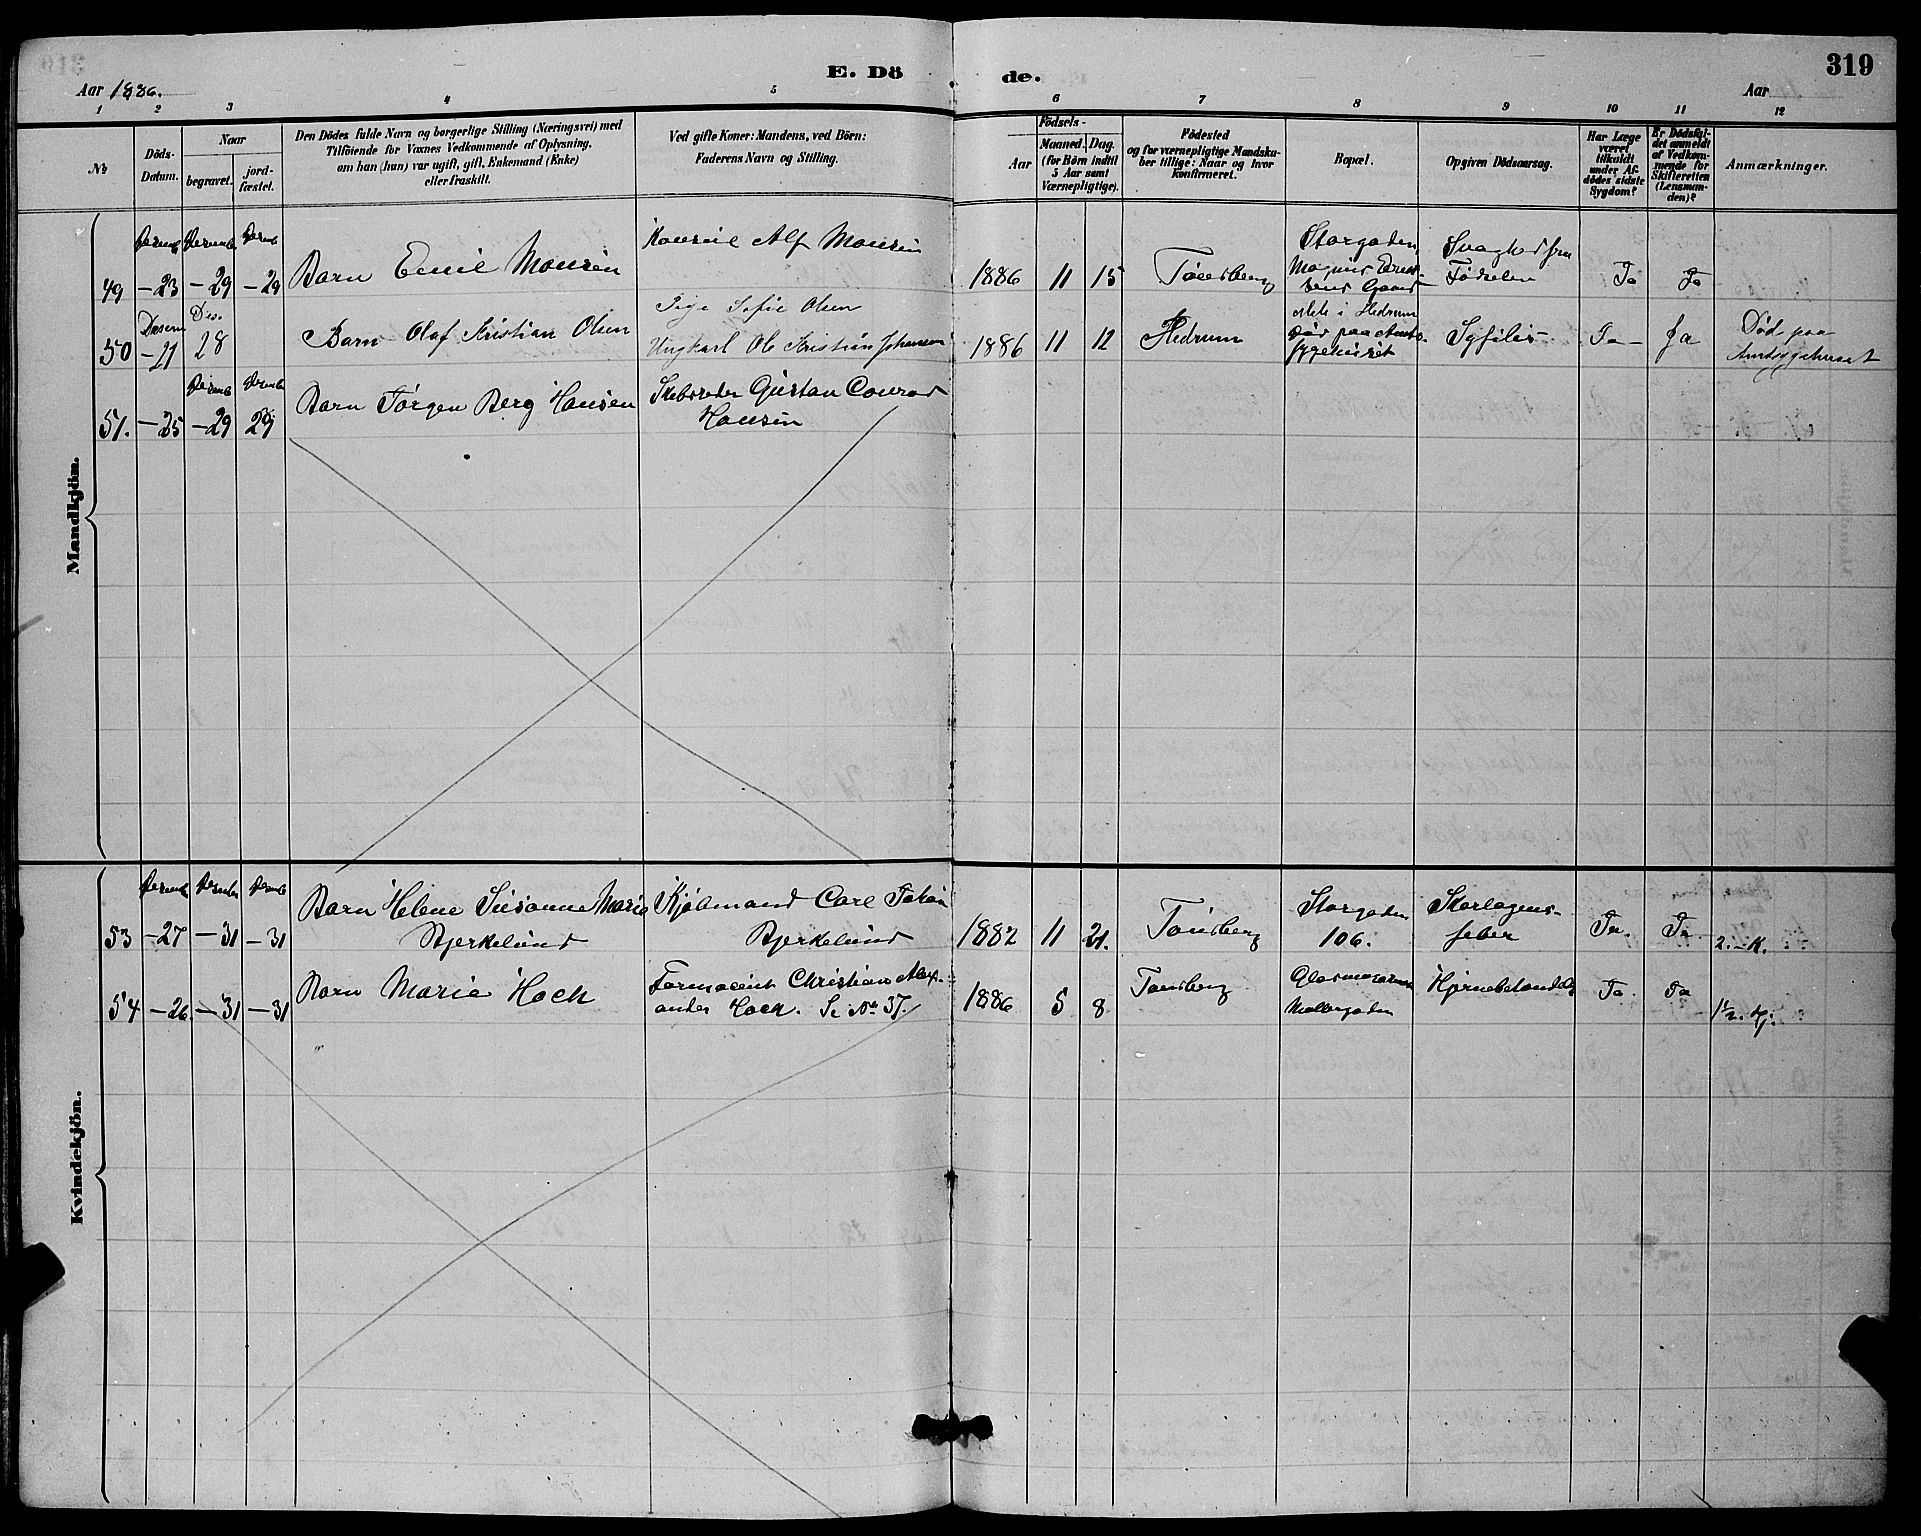 E. Dö de.
319
Aar 1886.
Aar
1 2 3 4 5 6 7 8 9 10 11 12
No
Döds-Datum.
Naar
begravet.
jord-fæstet.
Den Dödes fulde Navn og borgerlige Stilling (Næringsvei) med
Tilföiende for Voxnes Vedkommende af Oplysning,
om han (hun) var ugift, gift, Enkemand (Enke)
eller fraskilt.
Ved gifte Koner: Mandens, ved Börn:
Faderens Navn og Stilling.
Födsels-
Aar
Maaned. Dag.
(for Börn indtil
5 Aar samt
Værnepligtige).
Födested
og for værnepligtige Mandska-
ber tillige: Naar og hvor
konfirmeret.
Bopæl.
Opgiven Dödsaarsag.
Har Læge
været
tilkaldt
under Af-
dödes sidste
Sygdom?
Er Dödsfal-
det anmeldt
af Vedkom-
mende for
Skifteretten
(Lensman-
den)?
Anmærkninger.
Mandkjön.
49 Desemb – 23 Desemb – 29 Desemb – 29 Barn Emil Monsen Konsul Alf Monsen 1886 11 15 Tønsberg Storgaden Magnus Gaard Svaghed fra Fødselen Ja Ja
50 Desem – 21 Des. 28 Barn Olaf Kristian Olsen Pige Sofie Olsen Ungkarl Ole Kristian Johansen 1886 11 12 Hedrum i Hedrum død paa Amts-sygehuset Syfilis – Ja – Ja Død paa Amtssygehuset
51. – 25 Desemb – 29 Desemb 29 Barn Jørgen Berg Hansen Skibsreder Gustav Conrad Hansen
Kvindekjön.
53 Desemb – 27 Desember – 31 Desemb – 31 Barn Helene Susanne Marie Bjerkelund Kjøbmand Carl Johan Bjerkelund 1882 11 21. Tønsberg Storgaden 106. Skarlagens-feber Ja. Ja 2. – K.
54 – 26. – 31 – 31 Barn Maria Hoch Farmaceut Christian Alex-ander Hoch. Se No 37. 1886 5 8 Tønsberg Møllergaden Hjernebetændelse Ja. Ja 1½. Kj.